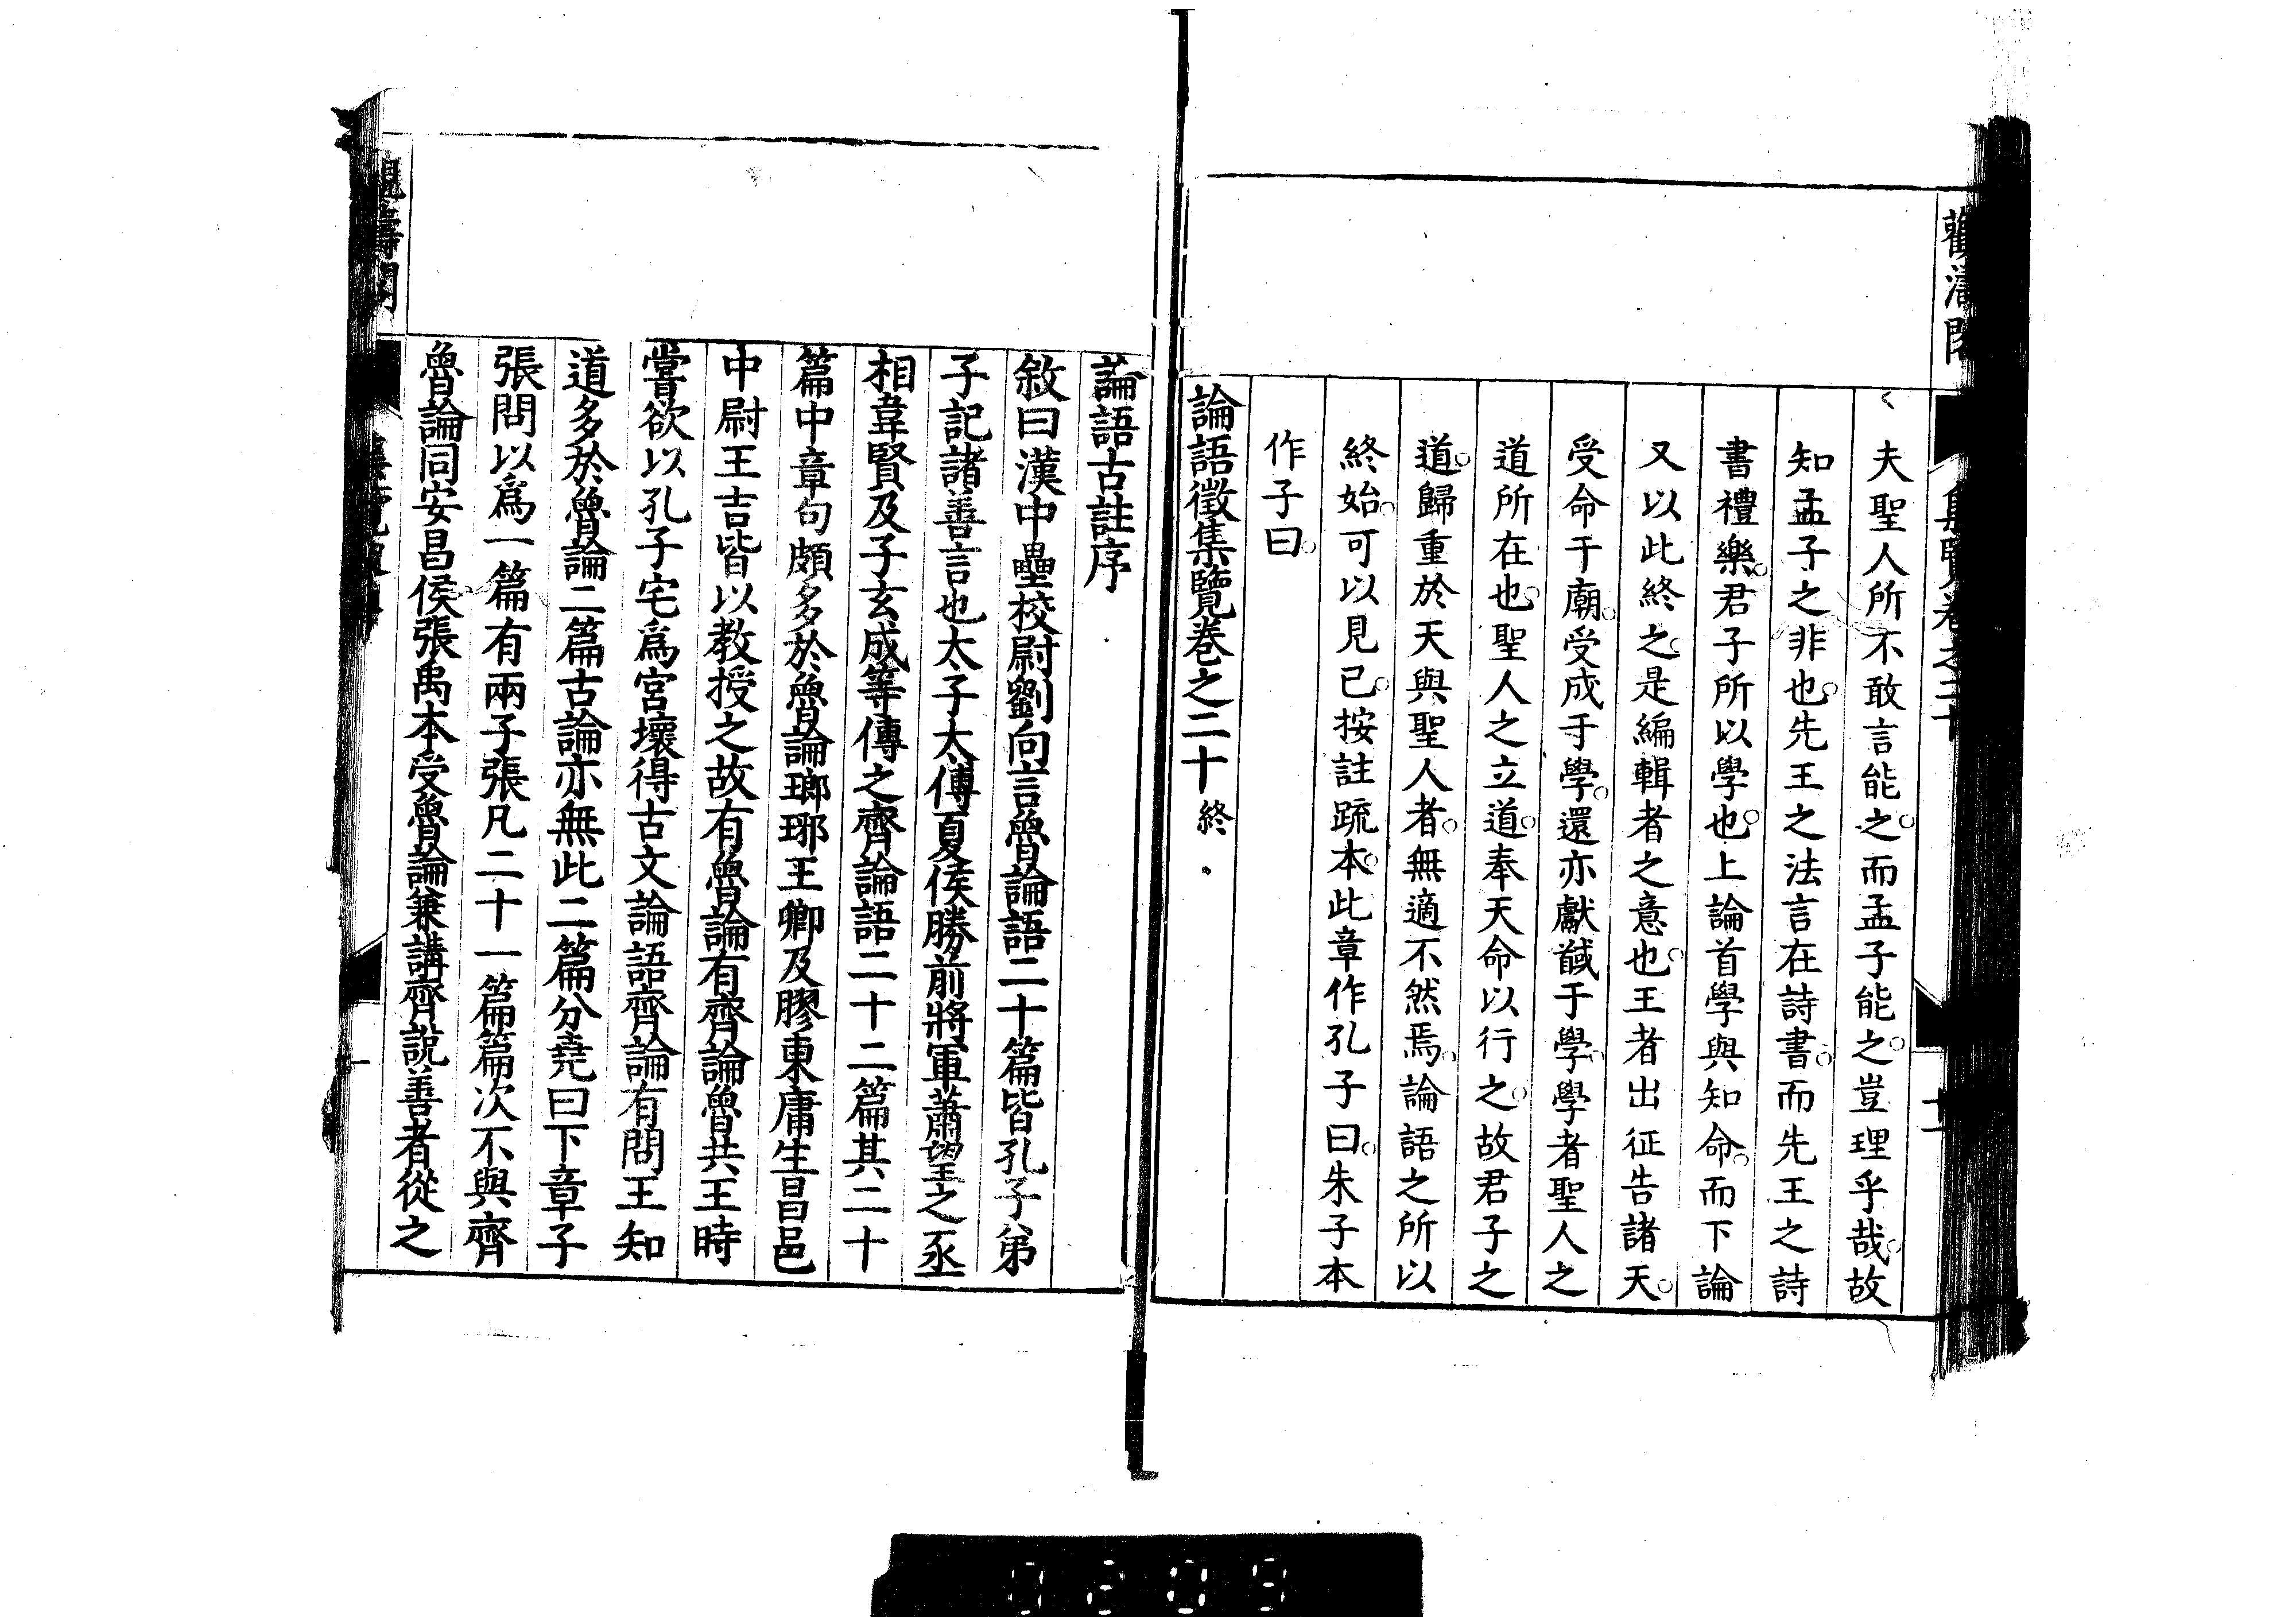 夫聖人所不敢言能之而孟子能之豈理乎哉故
知孟子之非也先王之法言在詩書而先王之詩
書禮樂君子所以學也上論首學與知命而下論
又以此終之是編輯者之意也王者出征告諸天
受命于廟受成于學還亦獻馘于學學者聖人之
道所在也聖人之立道奉天命以行之故君子之
道歸重於天與聖人者無適不然焉論語之所以
終始可以見已按註疏本此章作孔子曰朱子本
作子曰
論語徵集覽卷之二十終
論語古註序
敘曰漢中壘校尉劉向言魯論語二十篇皆孔子弟
子記諸善言也太子太傅夏侯勝前將軍蕭望之丞
相韋賢及子玄成等傳之齊論語二十二篇其二十
篇中章句頗多於魯論瑯琊王卿及膠東庸生昌邑
中尉王吉皆以教授之故有魯論有齊論魯共王時
嘗欲以孔子宅爲宮壞得古文論語齊論有問王知
道多於魯論二篇古論亦無此二篇分堯曰下章子
張問以爲一篇有兩子張凡二十一篇篇次不與齊
魯論同安昌侯張禹本受魯論兼講齊說善者從之